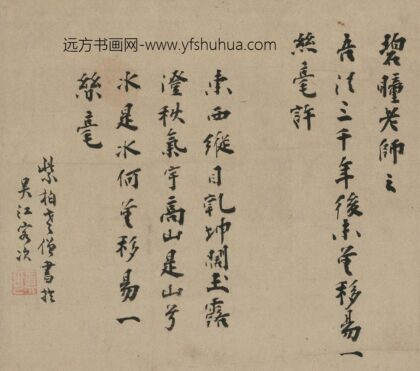 远方书画网-www.yfshuhua.com
碧瞳老師之
吾法三千年後未曾移易一
絲毫許
東西縱目乾坤闊玉露
澄秋氣宇高山是山兮
水是水何曾移易一
絲毫
紫柏老僧書於
吳江客次